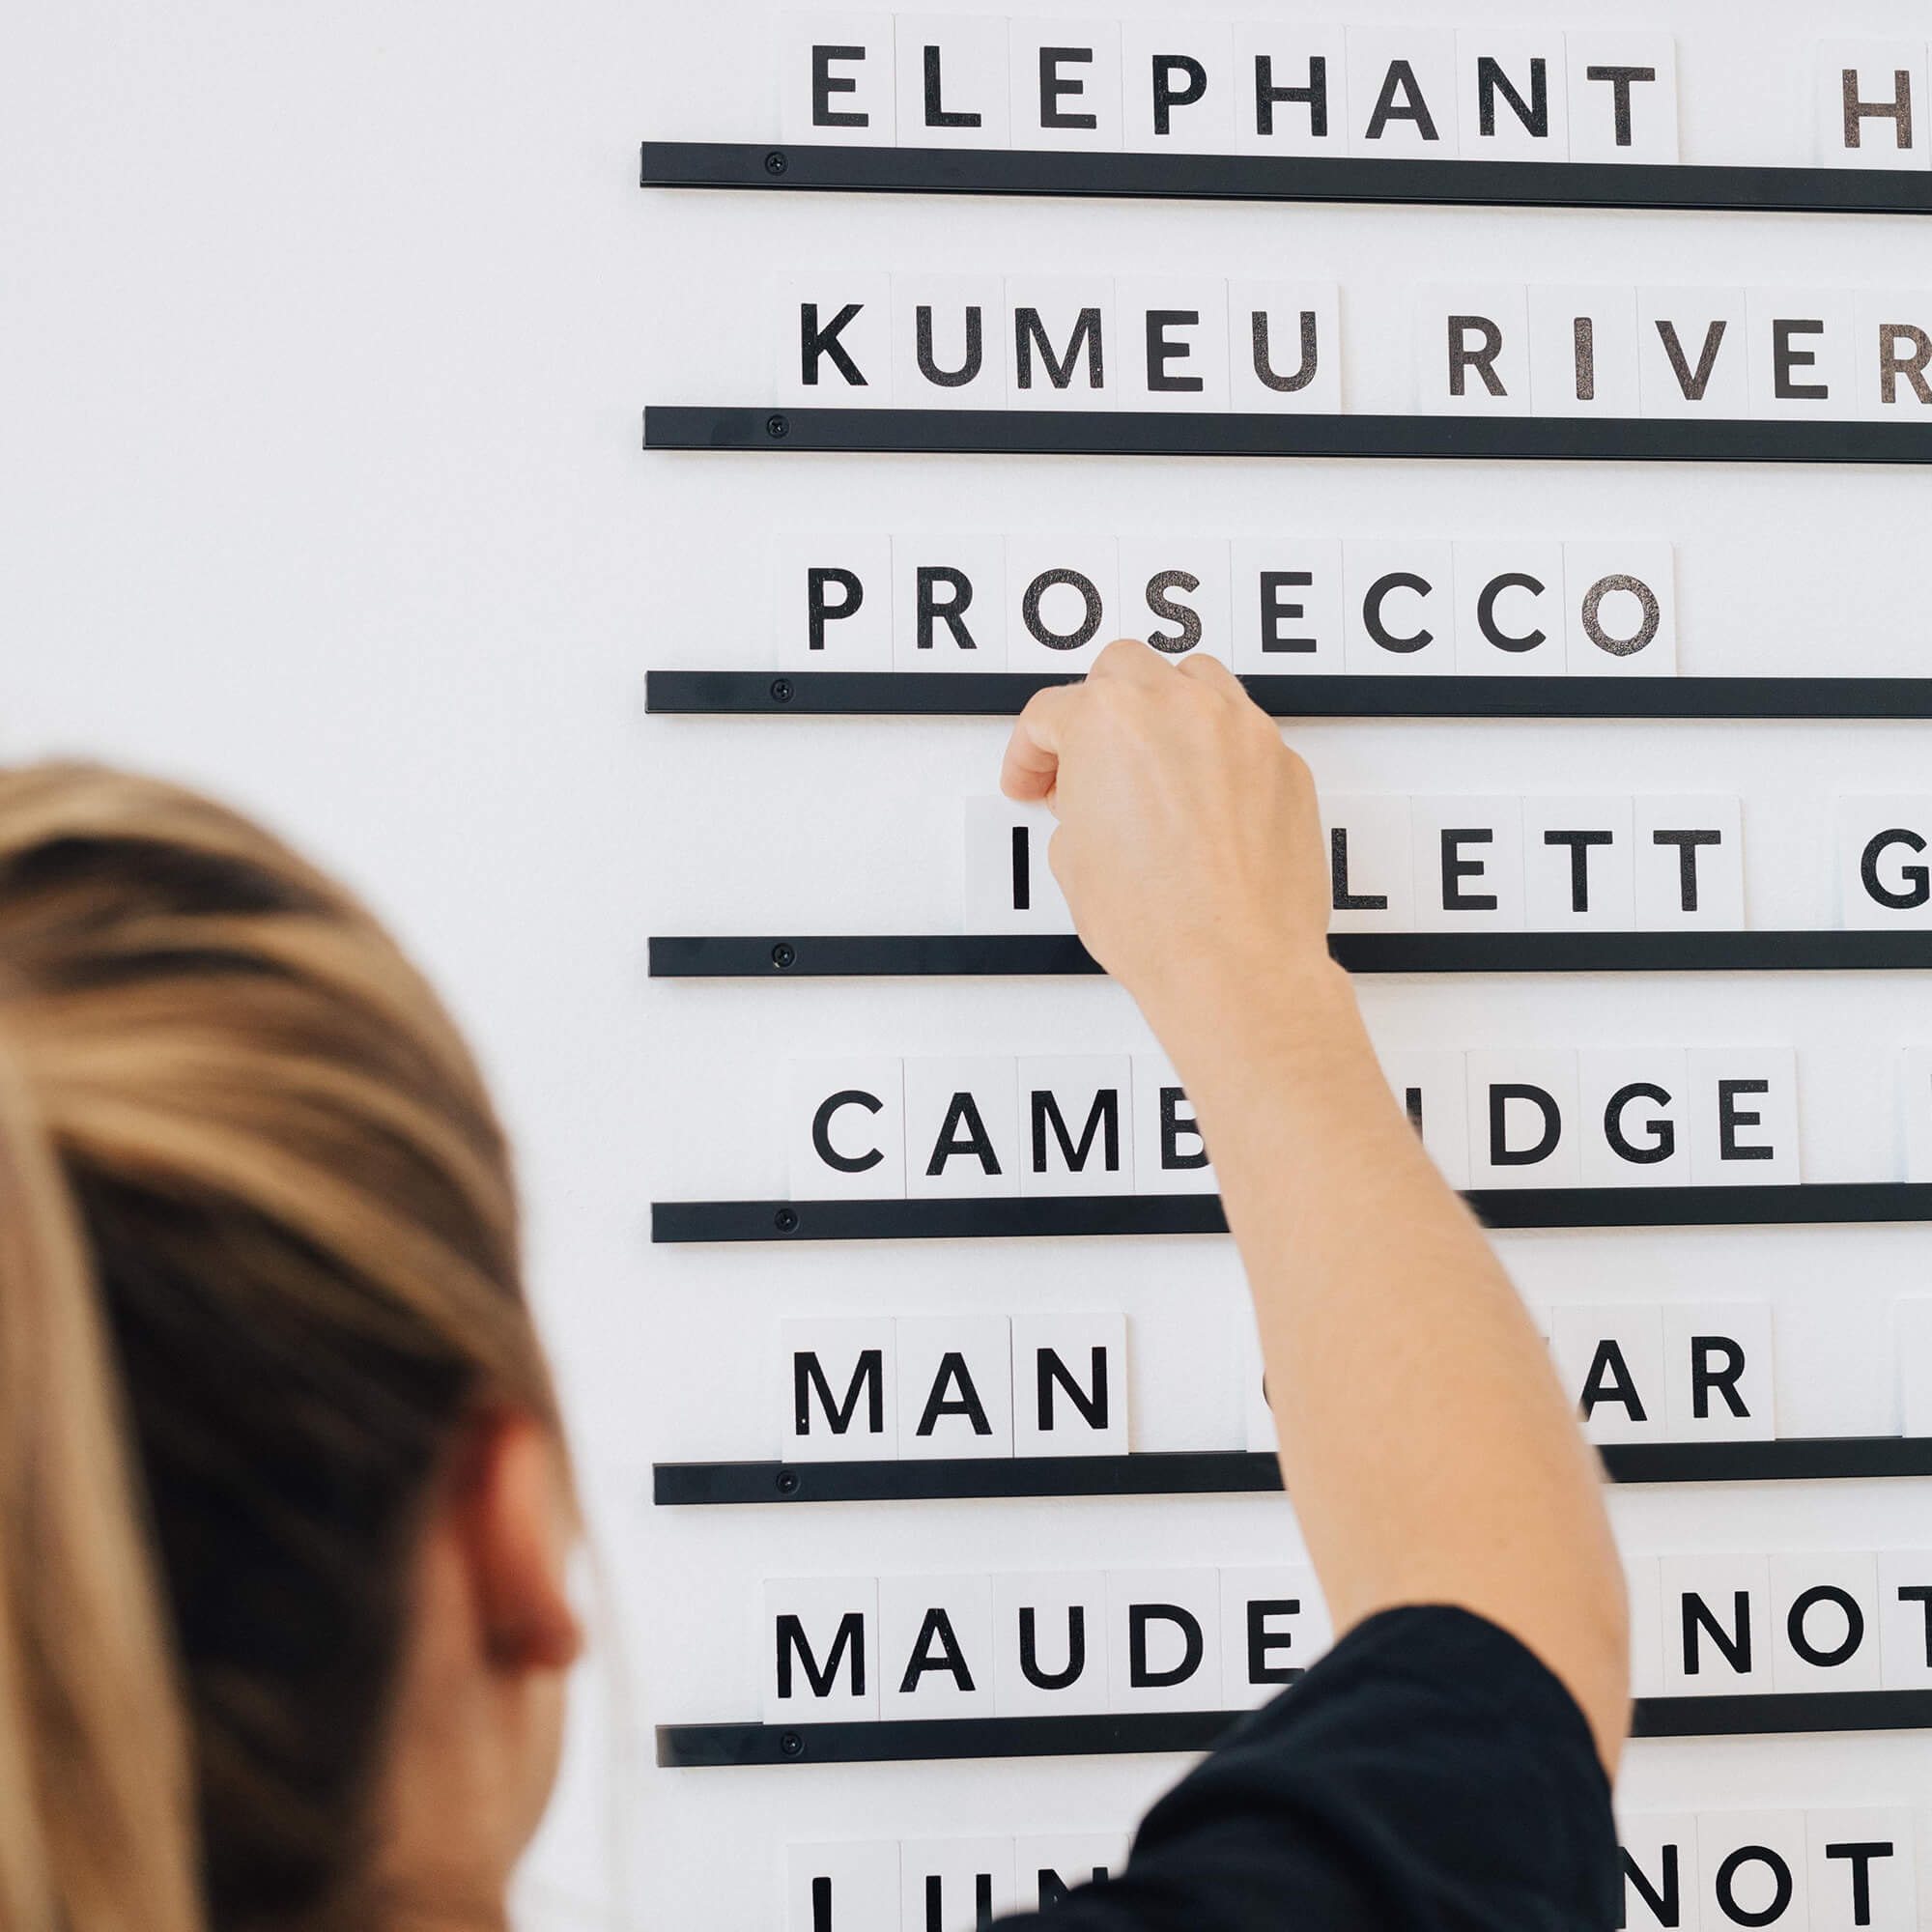 ELEPHANT H
KUMEU RIVER
PROSECCO
LETT G
CAMB IDGE
MAN AR
MAUDE NOT
NOT